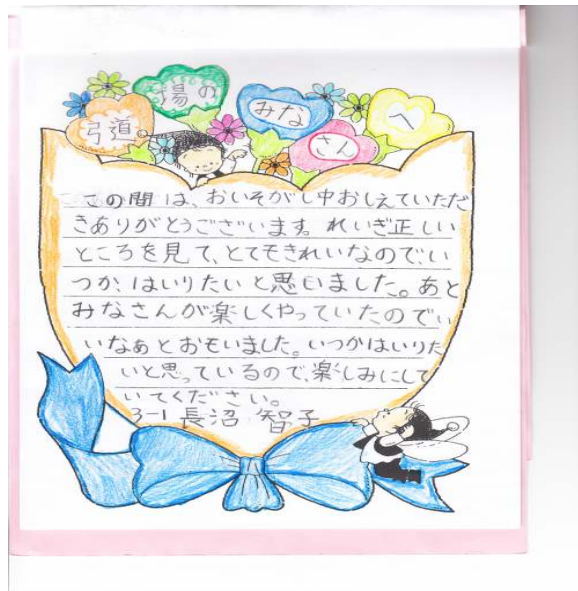 弓道場のみなさんへ
この間は、おいそがし中おしえていただ
きありがとうございます。れいぎ正しい
ところを見て、とてもきれいなので、い
つか、はいりたいと思いました。あと
みなさんが楽しくやっていたのでい
いなあとおもいました。いつかはいりた
いと思っているので、楽しみにして
いてください。
3-1 長沼 智子